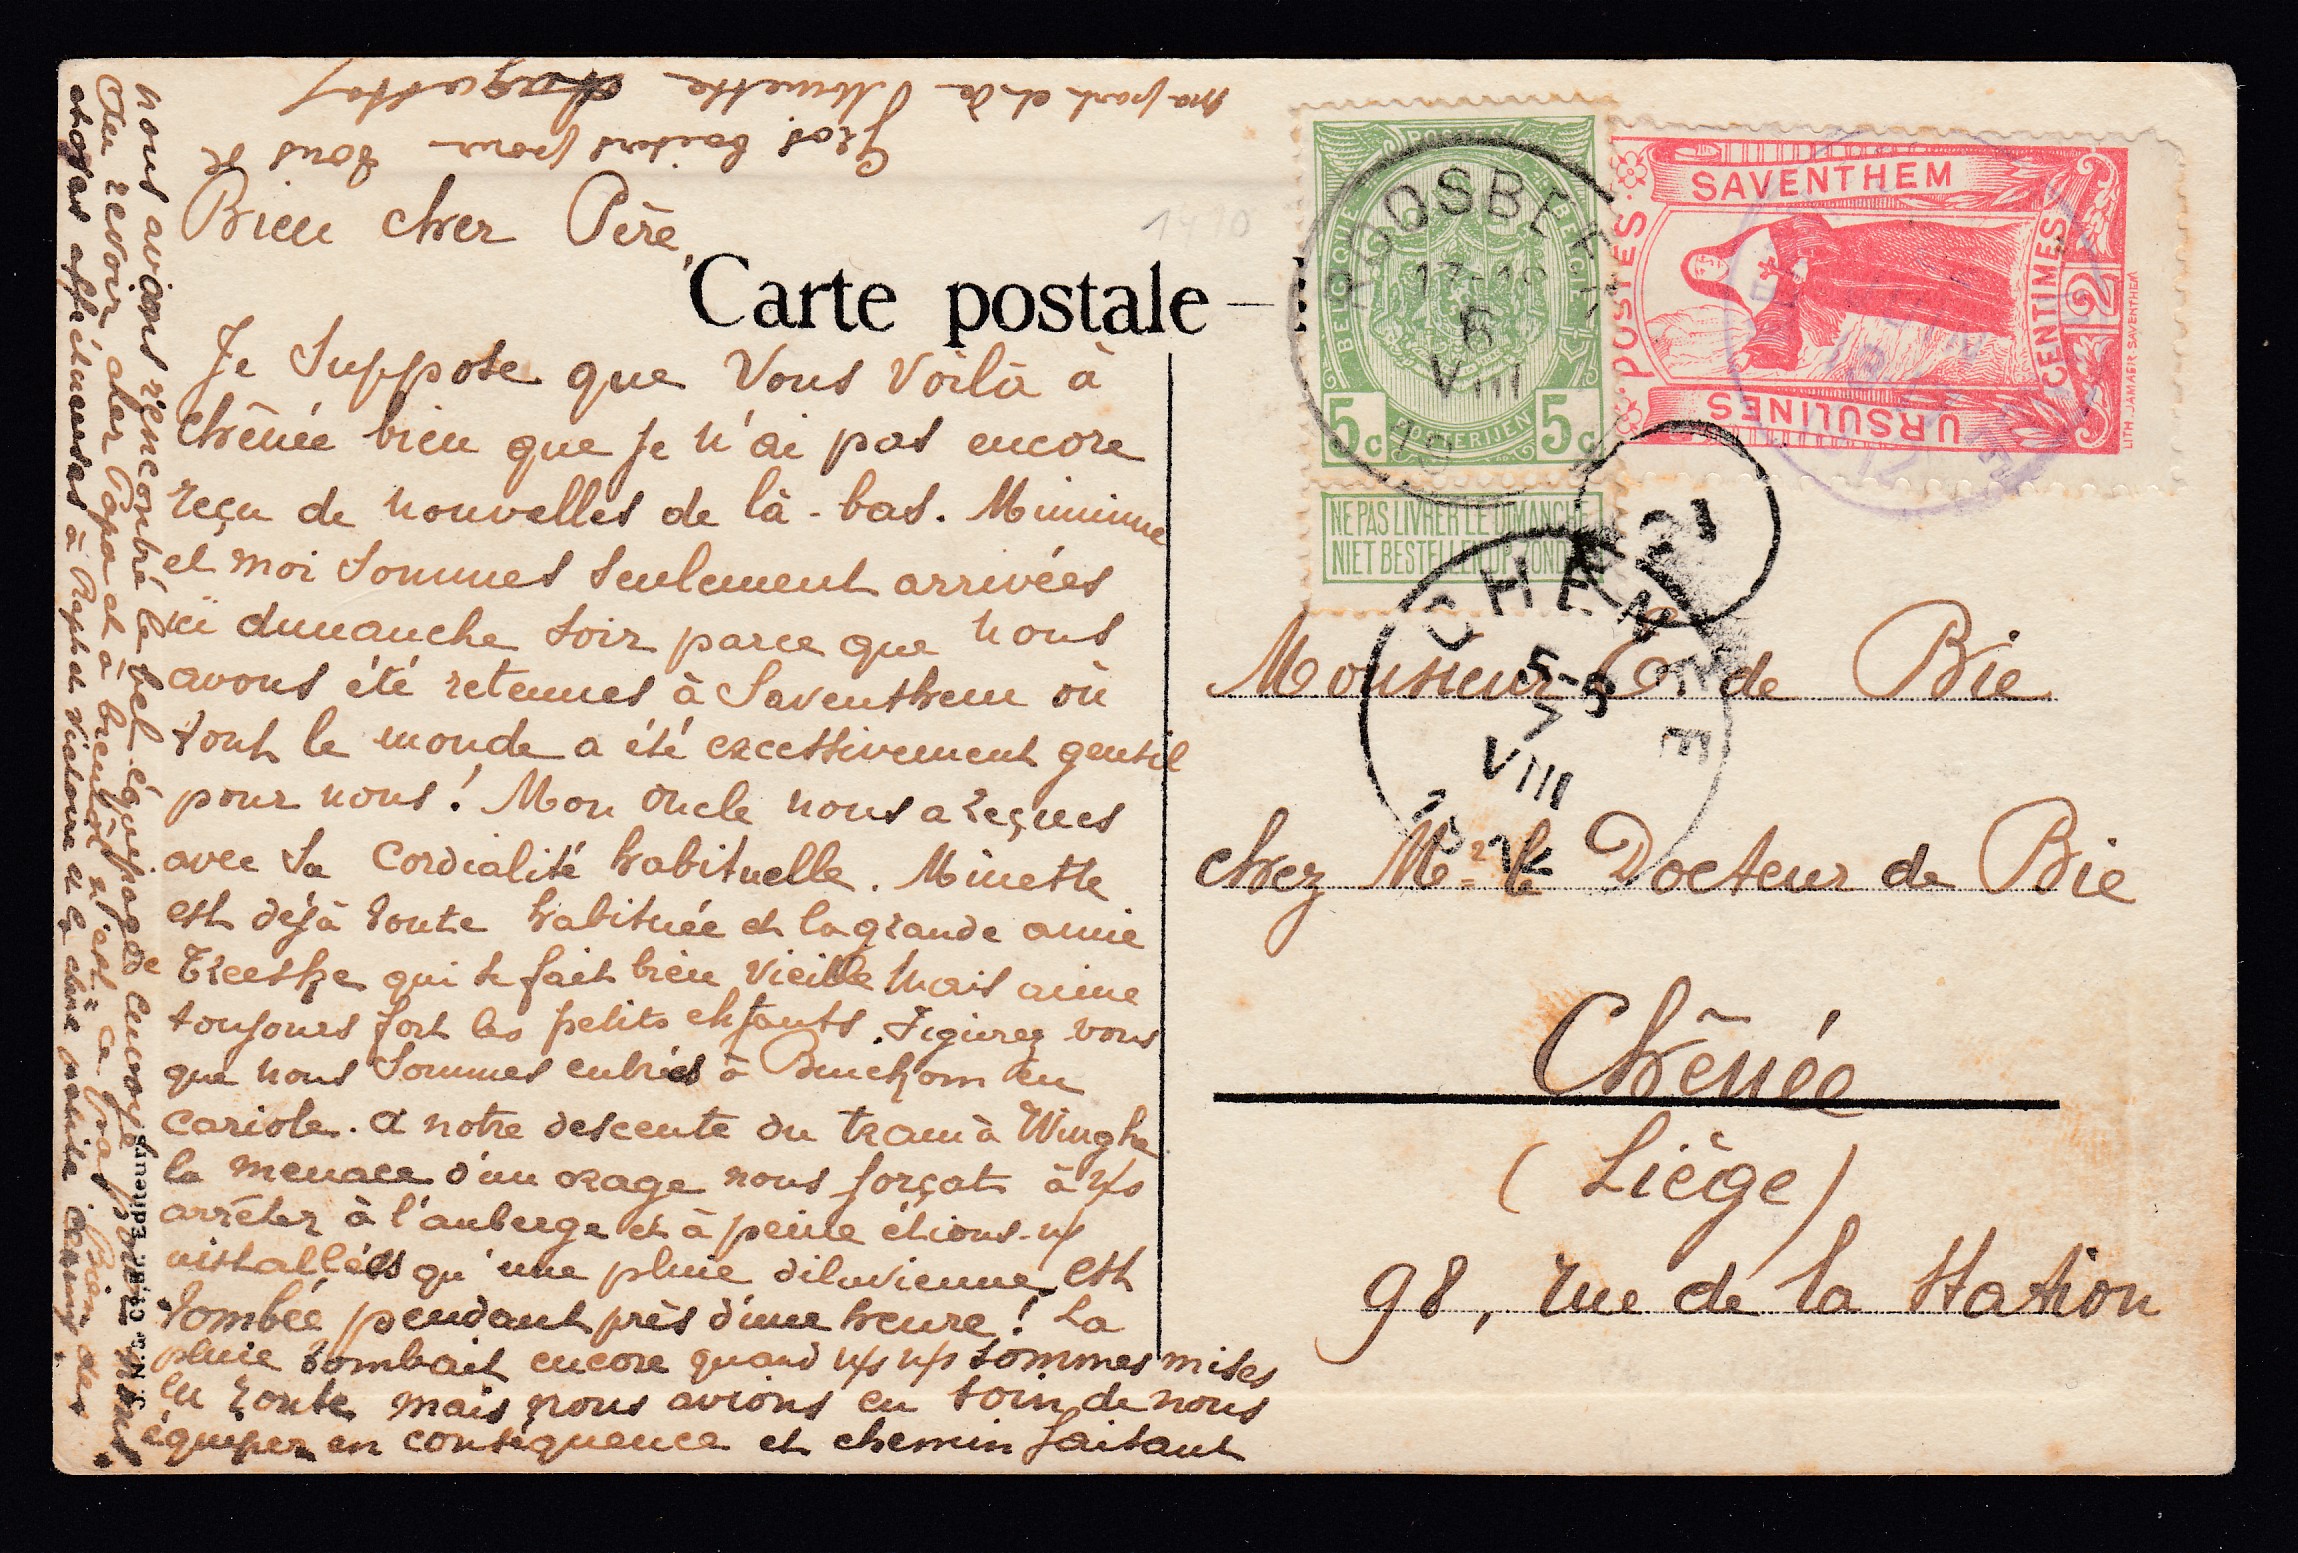 Gros baisers pour vous de
ma part et de Minette
Bien cher Père,
Carte postale
Je suppose que vous voilà à
Chênée bien que je n'ai pas encore
reçu de nouvelles de là-bas. Mimimne
et moi sommes seulement arrivées
ici dimanche soir parce que nous
avons été retenues à Saventhem où
tout le monde a été excessivement gentil
pour nous ! Mon oncle nous a reçues
avec sa cordialité habituelle. Minette
est déjà toute habituée et la grande amie
qui se fait bien vieille mais aime
toujours fort les petits enfants. Figurez vous
que nous sommes entrées à Binckom en
cariole. A notre descente du tram à Winghe
la menace d'un orage nous forçat à n/s
arrêter à l'auberge et à peine étions-n/s
installées qu'une pluie diluvienne est
tombée pendant près d'une heure ! La
pluie tombait encore quand n/s n/s sommes mises
en route mais nous avions eu soin de nous
équiper en conséquence et chemin faisant
nous avions rencontré le bel équipage de envoyé pour nous.
Au revoir cher Papa et à bientôt n'est ce pas ? Bien des
choses affectueuses à Raphaël Victoire et la chère petite
Editeurs
BELGIQUE
POSTES
BELGIE
POSTERIJEN
5c 5c
NE PAS LIVRER LE DIMANCHE
NIET BESTELLEN OP ZONDAG
ROOSBEEK
17-18
6
VIII
SAVENTHEM
POSTES
URSULINES
CENTIMES
2
LITH. JAMAER SAVENTHEM
21
CHÊNÉE
7
VIII
1410
Monsieur de Bie
chez Mr le Docteur de Bie
Chênée
(Liège)
98, rue de la Station